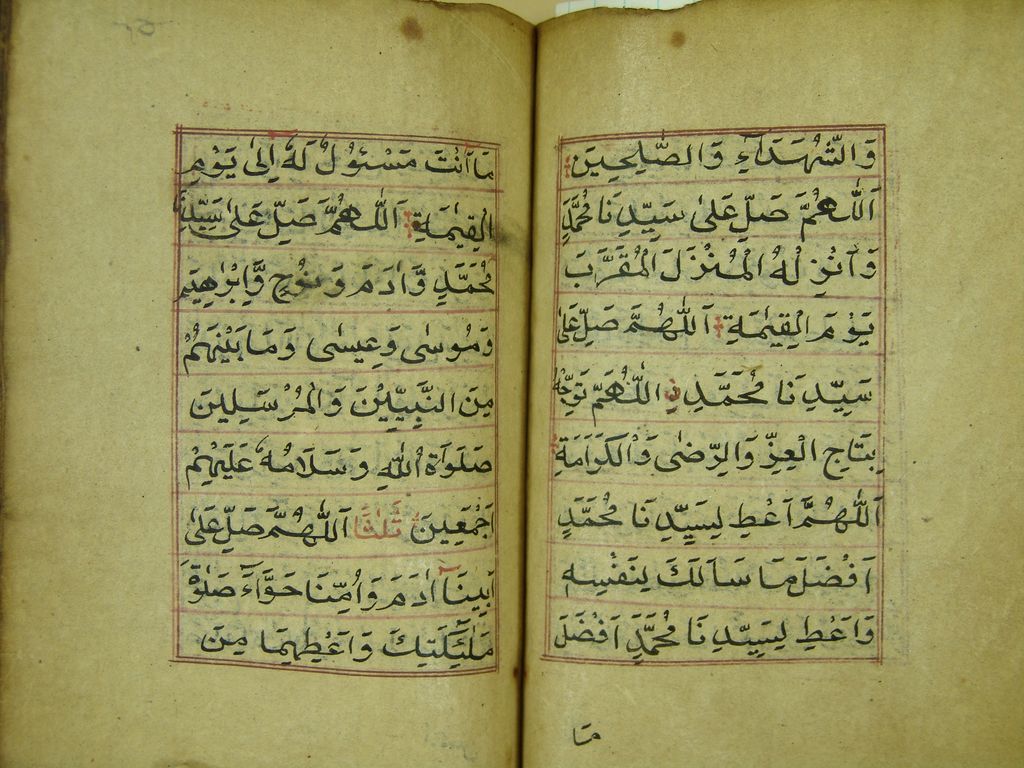 وَالشُّهَدَآءِ وَالصّٰلِحِيْنَ
اَللّٰهُمَّ صَلِّ عَلىٰ سَيِّدِنَا مُحَمَّدٍ
وَّاَنْزِلْهُ الْمُنْزَلَ الْمُقَرَّبَ
يَوْمَ الْقِيٰمَةِ اَللّٰهُمَّ صَلِّ عَلىٰ
سَيِّدِنَا مُحَمَّدِنِ اللّٰهُمَّ تَوِّجْهُ
بِتَاجِ الْعِزِّ وَالرِّضٰى وَالْكَرَامَةِ
اَللّٰهُمَّ اَعْطِ لِسَيِّدِنَا مُحَمَّدٍ
اَفْضَلَ مَا سَاَلَكَ لِنَفْسِهٖ
وَاَعْطِ لِسَيِّدِنَا مُحَمَّدٍ اَفْضَلَ
مَا
مَا اَنْتَ مَسْئُوْلٌ لَهٗ اِلىٰ يَوْمِ
الْقِيٰمَةِ اَللّٰهُمَّ صَلِّ عَلىٰ سَيِّدِنَا
مُحَمَّدٍ وَّاٰدَمَ وَنُوْحٍ وَّاِبْرٰهِيْمَ
وَمُوْسٰى وَعِيْسٰى وَمَا بَيْنَهُمْ
مِنَ النَّبِيِّيْنَ وَالْمُرْسَلِيْنَ
صَلَوَاةُ اللّٰهِ وَسَلَامُهٗ عَلَيْهِمْ
اَجْمَعِيْنَ ثَلٰثًا اَللّٰهُمَّ صَلِّ عَلىٰ
اَبِيْنَآ اٰدَمَ وَاُمِّنَا حَوَّآءَ صَلٰوةَ
مَلٰٓئِكَتِكَ وَاَعْطِهِمَا مِنَ